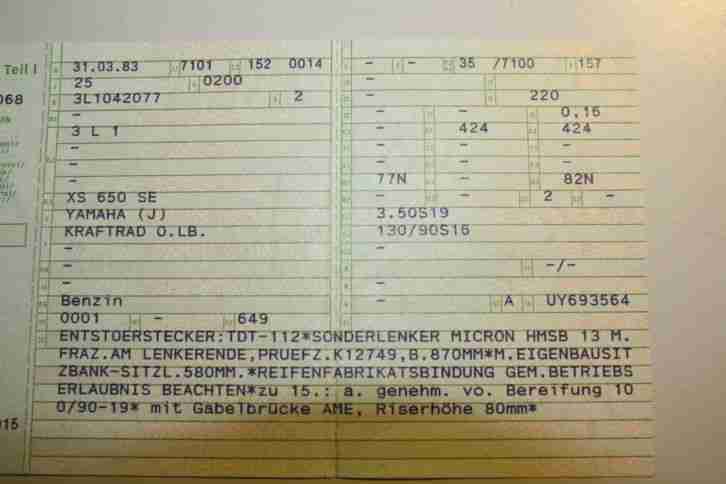 Teil I
31.03.83 7101 152 0014 - - 35 /7100 157
25 0200 -
068 3L1042077 2 - 220
- - - 0,16
3 L 1 - 424 424
- - - -
- - - -
- 77N - 82N
XS 650 SE - - 2 -
YAMAHA (J) 3.50S19
KRAFTRAD O.LB. 130/90S16
- -
- - -/-
- -
Benzin - A UY693564
0001 - 649
ENTSTOERSTECKER:TDT-112*SONDERLENKER MICRON HMSB 13 M.
FRAZ.AM LENKERENDE,PRUEFZ.K12749,B.870MM*M.EIGENBAUSIT
ZBANK-SITZL.580MM.*REIFENFABRIKATSBINDUNG GEM.BETRIEBS
ERLAUBNIS BEACHTEN*zu 15.: a. genehm. vo. Bereifung 10
0/90-19* mit Gabelbrücke AME, Riserhöhe 80mm*
015